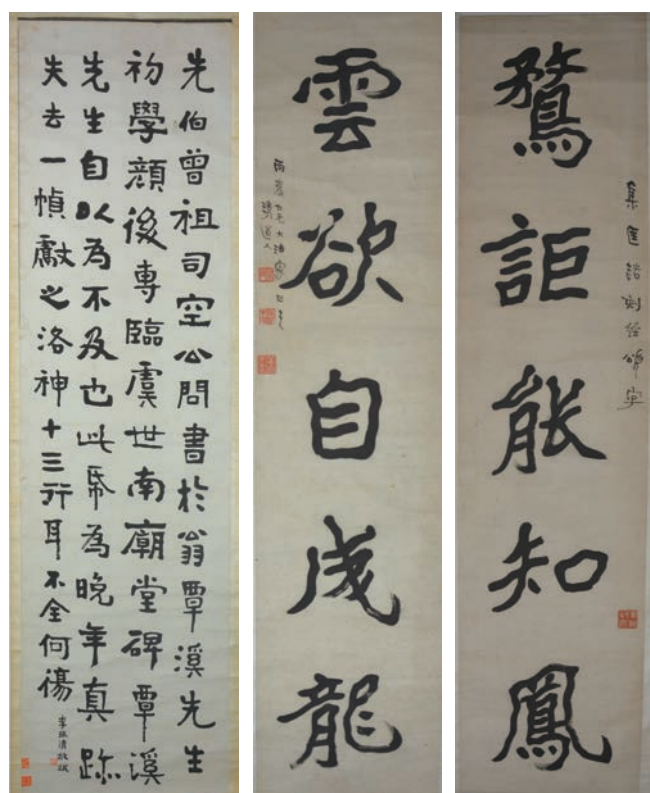 集匡喆刻經頌字
鶩詎能知鳳
雲欲自成龍
清道人
先伯曾祖司空公問書於翁覃溪先生
初學顏後專臨虞世南廟堂碑覃溪
先生自以為不及也此帋為晚年真跡
失去一幀獻之洛神十三行耳不全何傷
李瑞清敬跋